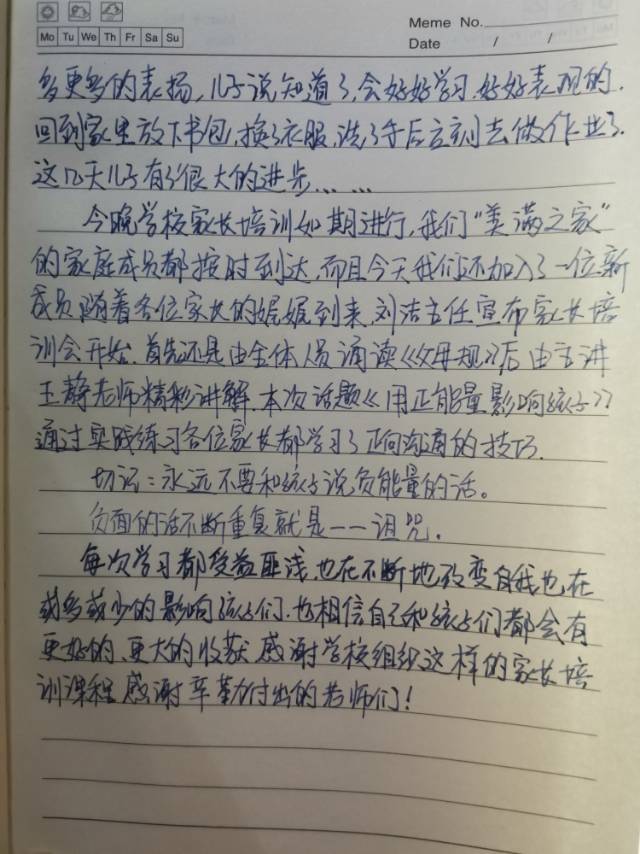 Meme No.
Mo Tu We Th Fr Sa Su
Date / /
多更多的表扬,儿子说知道了,会好好学习,好好表现的.
回到家里放下书包,换了衣服,洗了手后立刻去做作业了.
这几天儿子有了很大的进步……
今晚学校家长培训如期进行,我们“美满之家”
的家庭成员都按时到达,而且今天我们还加入了一位新
成员随着各位家长的娓娓到来,刘洁主任宣布家长培
训会开始.首先还是由全体人员诵读《父母规》后由主讲
王静老师精彩讲解.本次话题《用正能量影响孩子》
通过实践练习各位家长都学习了正向沟通的技巧.
切记:永远不要和孩子说负能量的话。
负面的话不断重复就是——诅咒.
每次学习都受益匪浅.也在不断地改变自我也在
或多或少的影响孩子们.也相信自己和孩子们都会有
更好的、更大的收获 感谢学校组织这样的家长培
训课程 感谢辛勤付出的老师们!